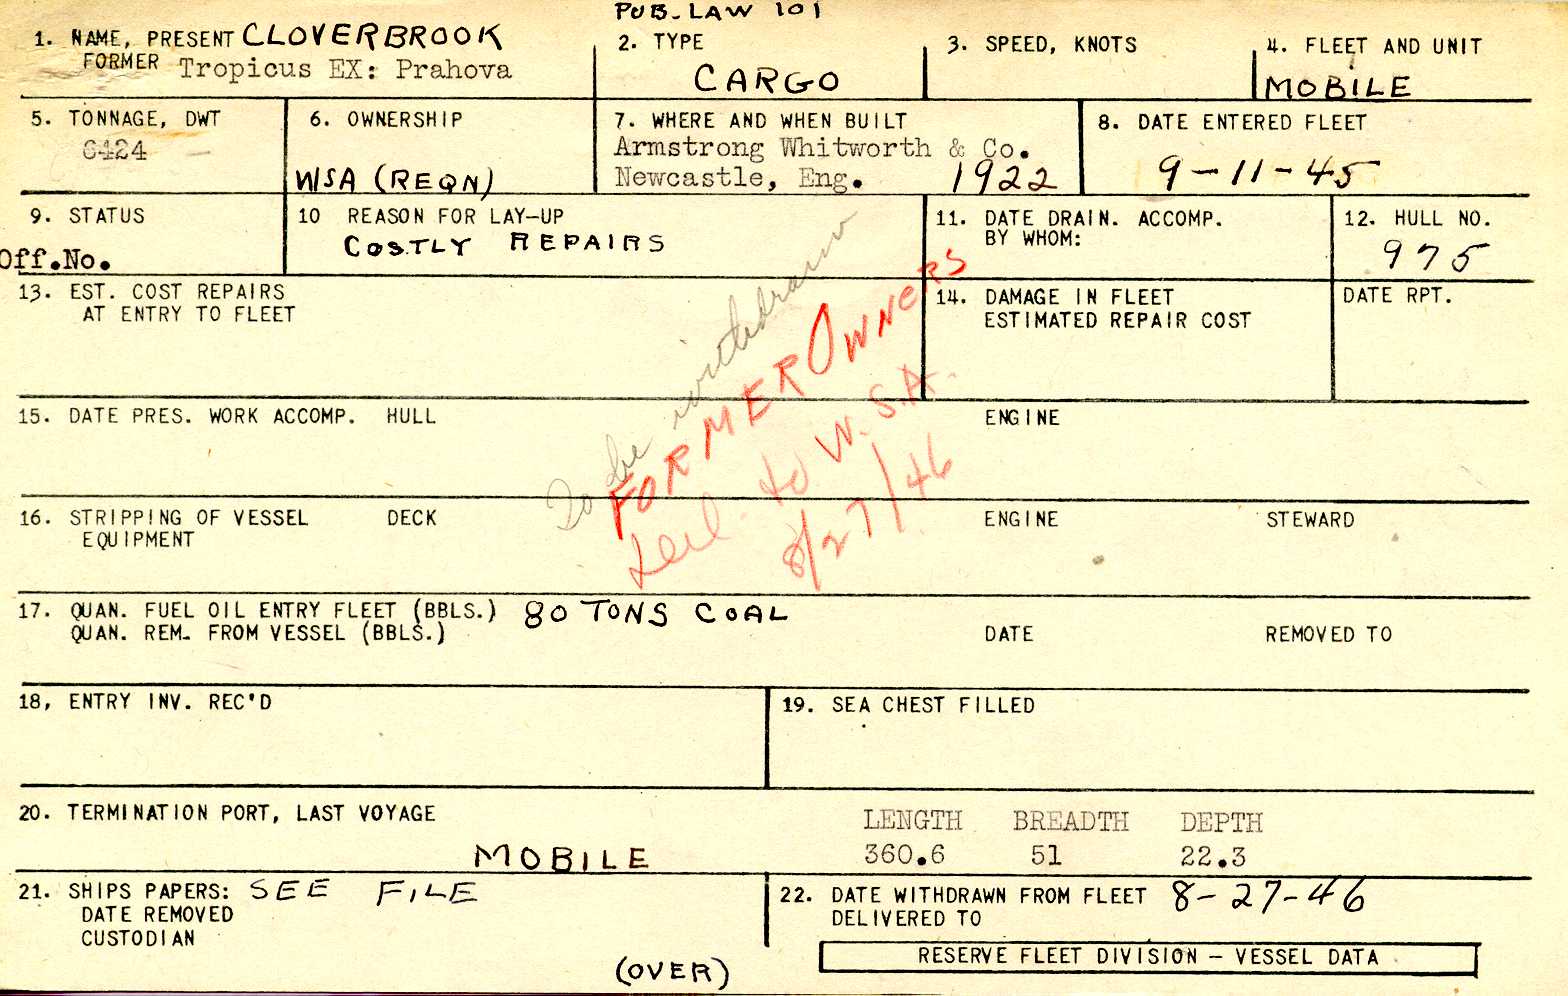 PUB. LAW 101
1. NAME, PRESENT CLOVERBROOK
FORMER Tropicus EX: Prahova
2. TYPE
CARGO
3. SPEED, KNOTS
4. FLEET AND UNIT
MOBILE
5. TONNAGE, DWT
6424
6. OWNERSHIP
WSA (REQN)
7. WHERE AND WHEN BUILT
Armstrong Whitworth & Co.
Newcastle, Eng. 1922
8. DATE ENTERED FLEET
9-11-45
9. STATUS
Off.No.
10 REASON FOR LAY-UP
COSTLY REPAIRS
11. DATE DRAIN. ACCOMP.
BY WHOM:
12. HULL NO.
975
13. EST. COST REPAIRS
AT ENTRY TO FLEET
14. DAMAGE IN FLEET
ESTIMATED REPAIR COST
DATE RPT.
To be withdrawn
FORMER OWNERS
Del. to W.S.A.
8/27/46
15. DATE PRES. WORK ACCOMP. HULL
ENGINE
16. STRIPPING OF VESSEL DECK
EQUIPMENT
ENGINE
STEWARD
17. QUAN. FUEL OIL ENTRY FLEET (BBLS.) 80 TONS COAL
QUAN. REM. FROM VESSEL (BBLS.)
DATE
REMOVED TO
18, ENTRY INV. REC'D
19. SEA CHEST FILLED
20. TERMINATION PORT, LAST VOYAGE
MOBILE
LENGTH BREADTH DEPTH
360.6 51 22.3
21. SHIPS PAPERS: SEE FILE
DATE REMOVED
CUSTODIAN
22. DATE WITHDRAWN FROM FLEET 8-27-46
DELIVERED TO
(OVER)
RESERVE FLEET DIVISION - VESSEL DATA